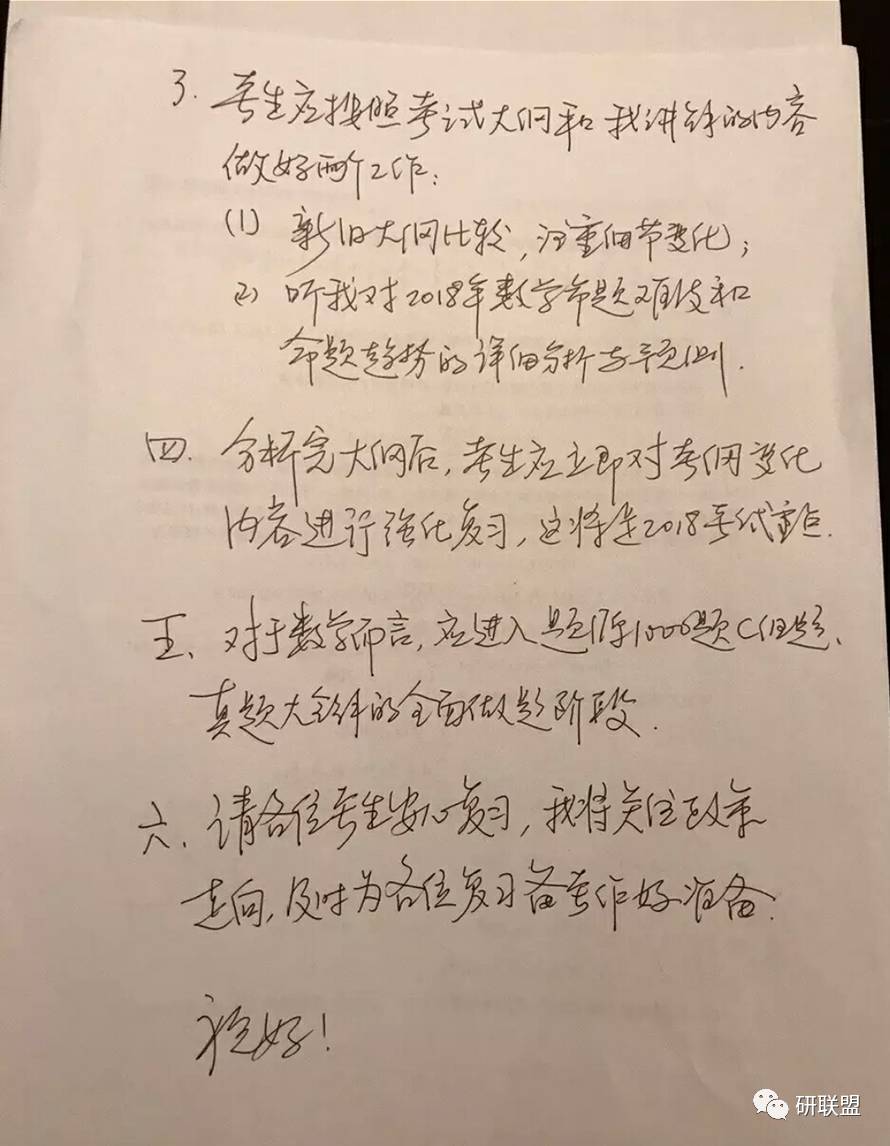 3. 考生应按照考试大纲和我讲解的内容
做好两个工作：
(1) 新旧大纲比较，注重细节变化；
(2) 听我对2018年数学命题难度和
命题趋势的详细分析与预测.
四. 分析完大纲后，考生应立即对考纲变化
内容进行强化复习，这将是2018考试重点.
五、对于数学而言，应进入题源1000题C组题、
真题大全解的全面做题阶段.
六、请各位考生安心复习，我将关注政策
走向，及时为各位复习备考作好准备.
祝好！
研联盟